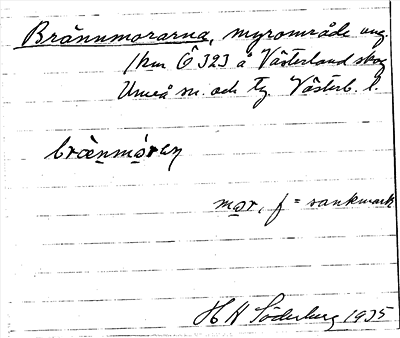 Brännmorarna, myrområde ung.
1 km Ö 323 å Västerland skog
Umeå sn. och tg. Västerb. l.
bränmøran
mor, f = sankmark
H H Söderberg 1935